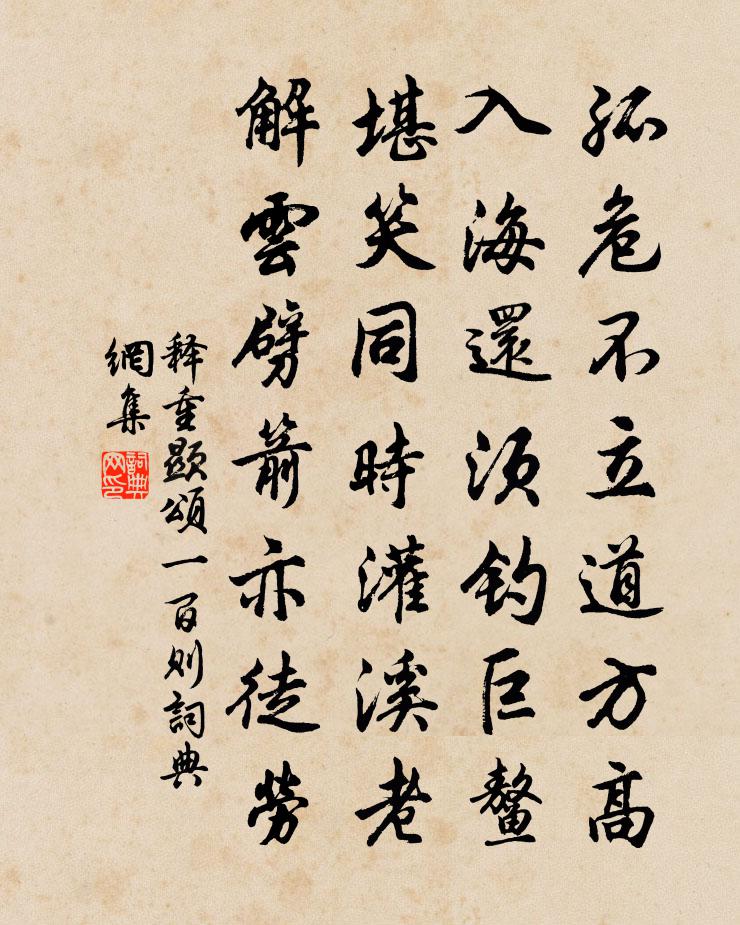 孤危不立道方高
入海還須钓巨鰲
堪笑同時灌溪老
解雲劈箭亦徒勞
释重顯頌一百则詞典
網集
詞典
网印